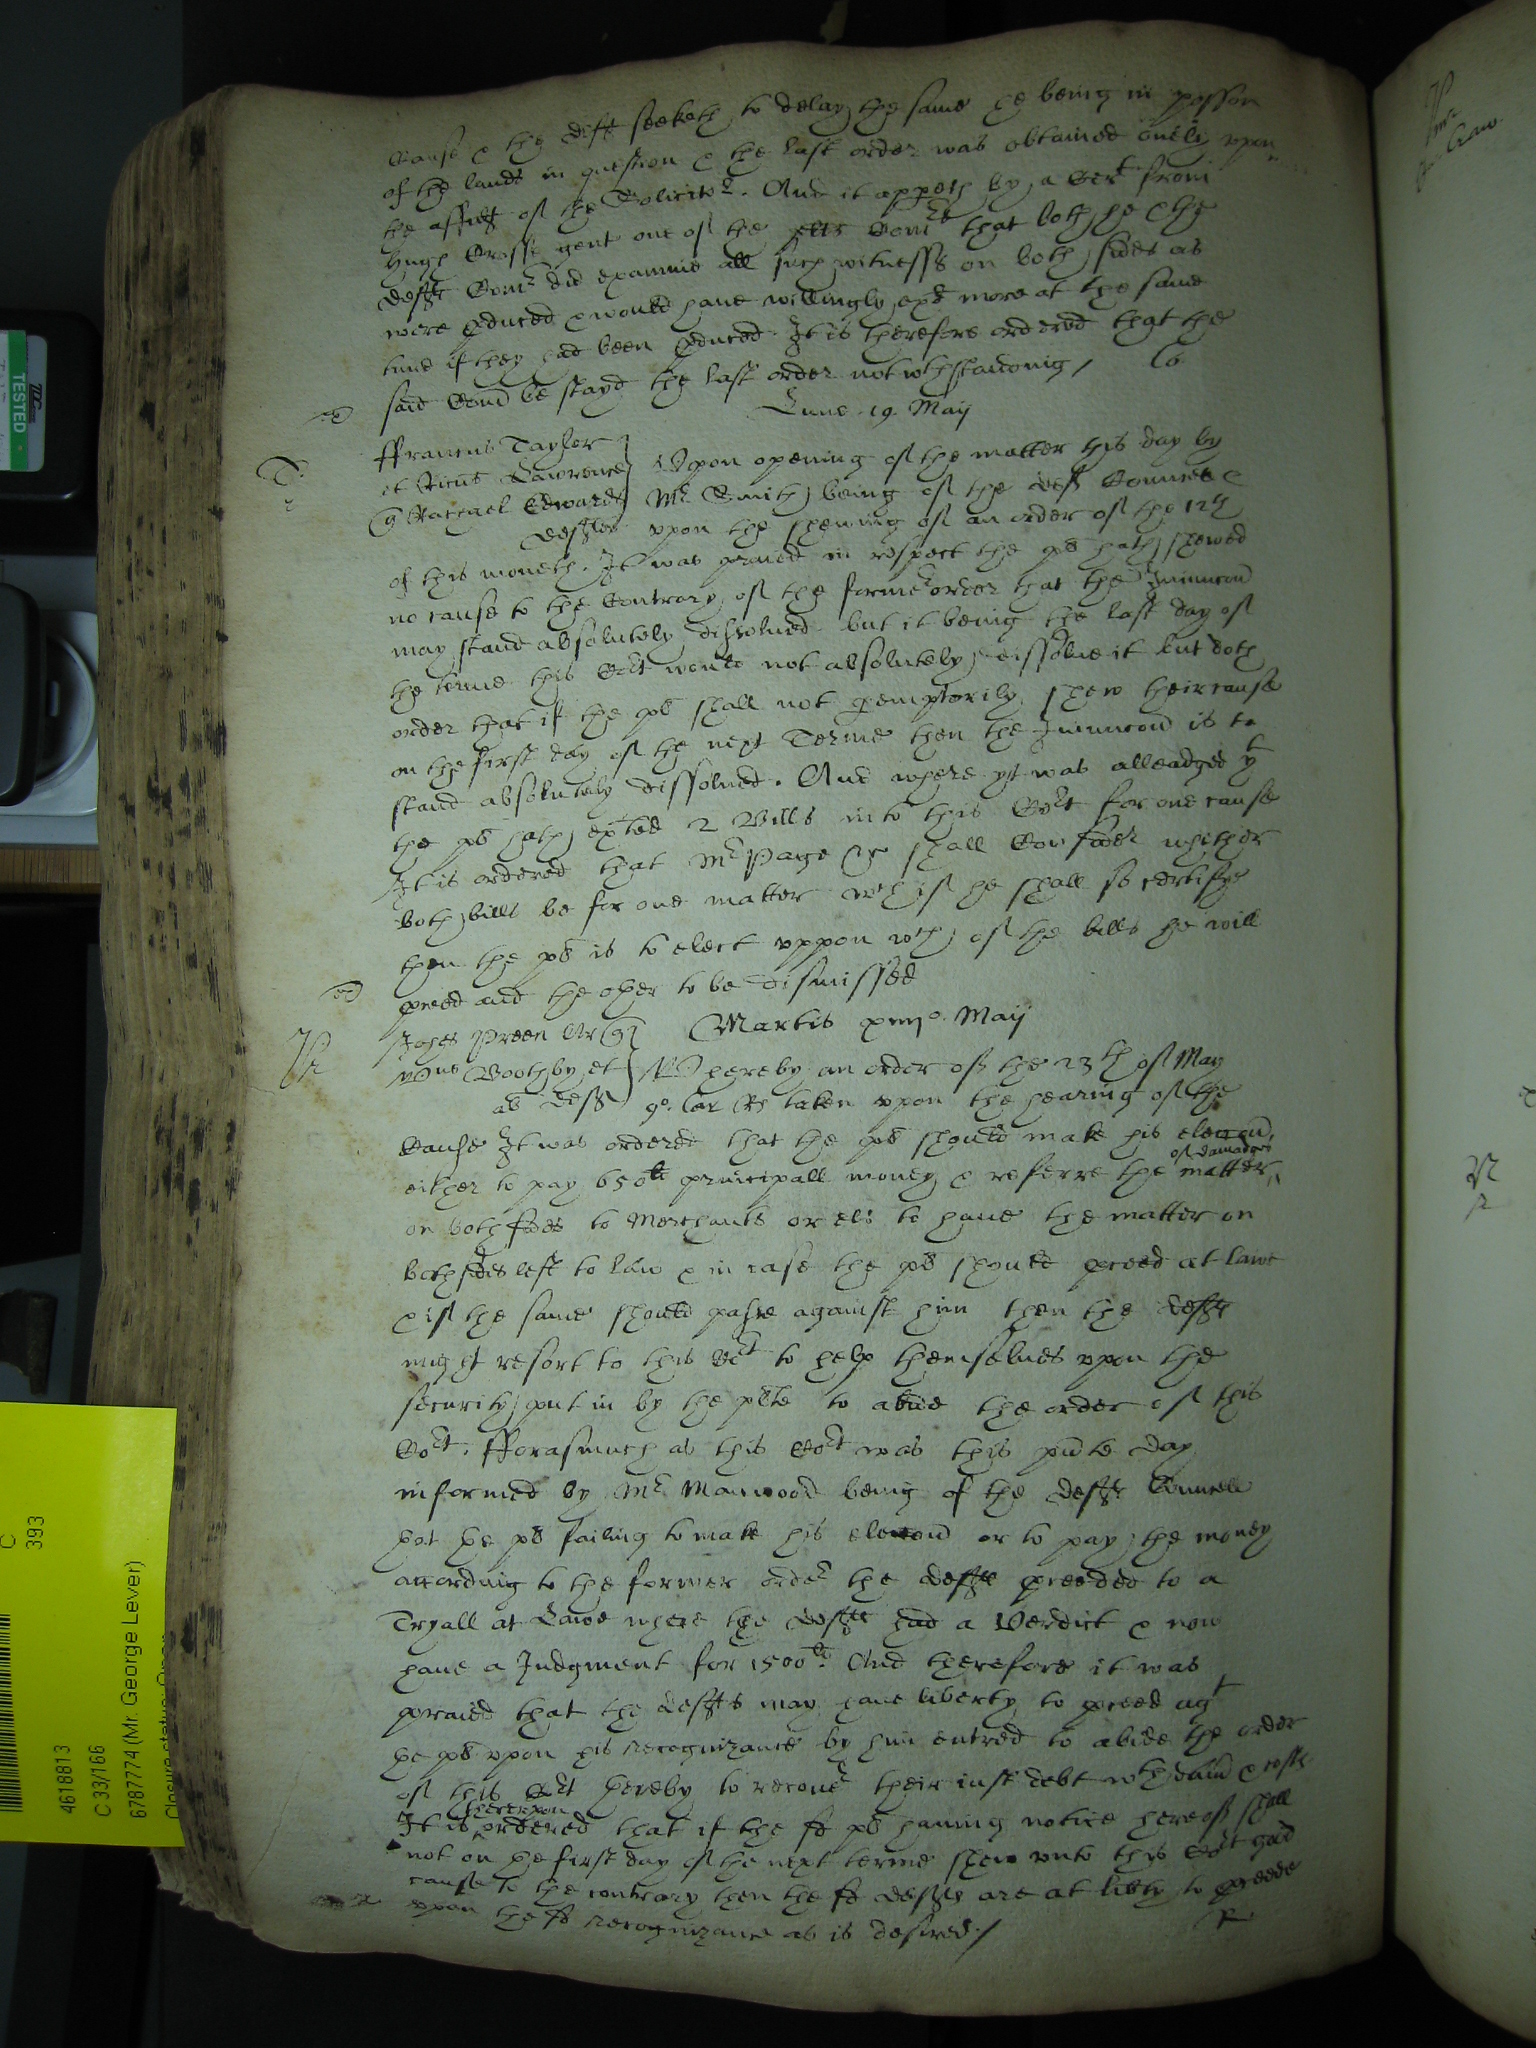 Cause & the deft seeketh to delay the same he being in possion
of the lands in question & the last order was obtained onely vpon
the affid of the Solicitor. And it appeth by a Cert from
Hugh Crosse gent one of the plts Comrs that both he & the
Defts Comr did examine all such witnesses on both sides as
were pduced & would haue willingly exd more at the same
time if they had been pduced. It is therefore ordered that the
said Comn be stayd the last order notwthstanding /
Lune 19 Maij
ffrancus Taylor
et Ricus Lawrence Vpon opening of the matter this day by
Rachael Edwards Mr Smith being of the defts Councell &
Deftes vpon the shewing of an order of the 12th
of this moneth. It was praied in respect the pls hath shewed
no cause to the Contrary of the former order that the Iniuncon
may stand absolutely dissolued but it being the last day of
the terme this Cort would not absolutely dissolue it but doth
order that if the pls shall not pemptorily shew their cause
on the first day of the next Terme then the Iniuncon is to
stand absolutely dissolued. And where yt was alleadged yt
the pls hath exhted 2 Bills into this Cort for one cause
It is ordered that Mr Page shall Consider whither
both bills be for one matter wch if he shall so certifye
then the pls is to elect vppon wch of the bills he will
pceed and the other to be dismissed
Johes Preen Ar Martis xxiiijo. Maij
Boothby et Whereby an order of the 23th of May
al Deft 9o. Car Rs taken vpon the hearing of the
Cause It was ordered that the pls should make his eleccon
of damages
either to pay 650li principall money & referre the matter
on both sides to Merchants or els to haue the matter on
both sides left to law & in case the pls should pceed at lawe
& if the same should passe against him then the defts
might resort to this Cort to help themselues vpon the
security put in by the plte to abide the order of this
Cort. fforasmuch as this Cort was this pnte day
informed by Mr Manwood being of the defts Councell
that the pls failing to make his eleccon or to pay the money
according to the former order the defts pceeded to a
Tryall at Lawe where the defts had a Verdict & now
haue a Judgment for 1500li. And therefore it was
praied that the defts may haue liberty to pceed agt
the pls vpon his recognizance by him entred to abide the order
of this Cort hereby to recouer their iust debt wth dam & costs
therevpon
It is ordered that if the sd pls hauing notice hereof shall
not on the first day of the next terme shew vnto this Cort good
cause to the contrary then the sd defts are at libty to pceede
vpon the sd recognizance as is desired /
TESTED
C
393
4618813
C 33/166
6787774 (Mr. George Lever)
Closure status: Open